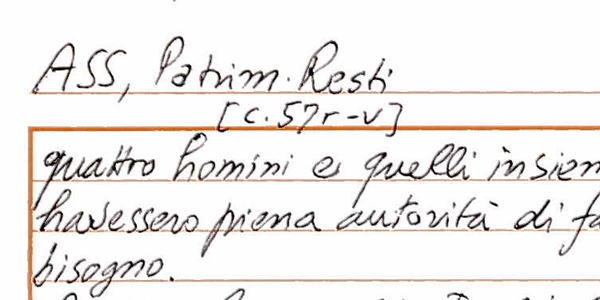 ASS, Patrim. Resti
[c. 57r-v]
quattro homini e quelli insiem
havessero piena autorità di fa
bisogno.